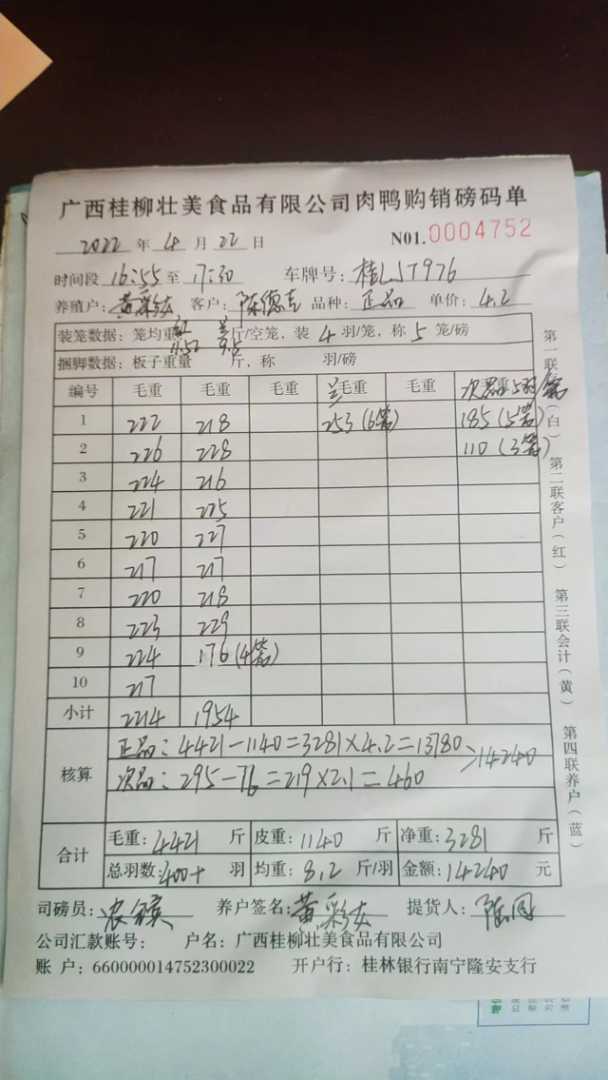 广西桂柳壮美食品有限公司肉鸭购销磅码单
2022 年 4 月 22 日 N01.0004752
时间段 16:55 至 17:30 车牌号:桂LJT976
养殖户:黄彩 客户:陈德 品种:正品 单价:4.2
装笼数据:笼均重 红 11.52 兰 9.5 斤/空笼,装 4 羽/笼,称 5 笼/磅
捆脚数据:板子重量 斤,称 羽/磅
编号 毛重 毛重 毛重 兰毛重 毛重 次
1 222 218 253(6笼) 185(5笼)
2 226 228 110(3笼)
3 224 216
4 221 225
5 220 227
6 217 217
7 220 218
8 223 229
9 224 176(4笼)
10 217
小计 2214 1954
核算 正品:4421-1140=3281×4.2=13780 >14240
次品:295-76=219×2.1=460
合计 毛重:4421 斤 皮重:1140 斤 净重:3281 斤
总羽数:400+ 羽 均重:8.2 斤/羽 金额:14240 元
司磅员:农 养户签名:黄彩 提货人:
公司汇款账号: 户名:广西桂柳壮美食品有限公司
账 户:660000014752300022 开户行:桂林银行南宁隆安支行
第一联(白) 第二联客户(红) 第三联会计(黄) 第四联养户(蓝)